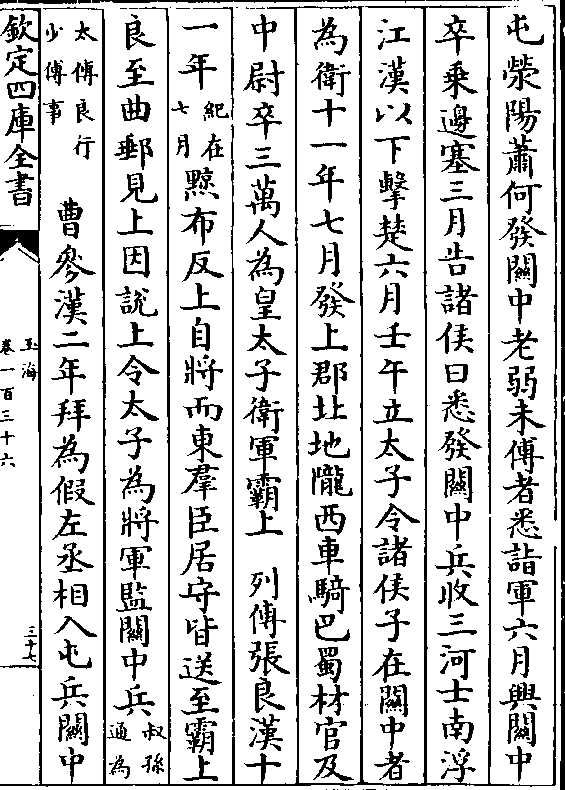 屯滎陽蕭何發關中老弱未傅者悉詣軍六月興關中
卒乗邊塞三月告諸侯曰悉發關中兵收三河士南浮
江漢以下擊楚六月壬午立太子令諸侯子在關中者
為衛十一年七月發上郡北地隴西車騎巴蜀材官及
中尉卒三萬人為皇太子衛軍霸上 列傳張良漢十
一年紀在七月黥布反上自將而東羣臣居守皆送至霸上
良至曲郵見上因說上令太子為將軍監關中兵叔孫通為
太傅良行少傅事 曹參漢二年拜為假左丞相入屯兵關中
欽定四庫全書
玉海
卷一百三十六
三十七